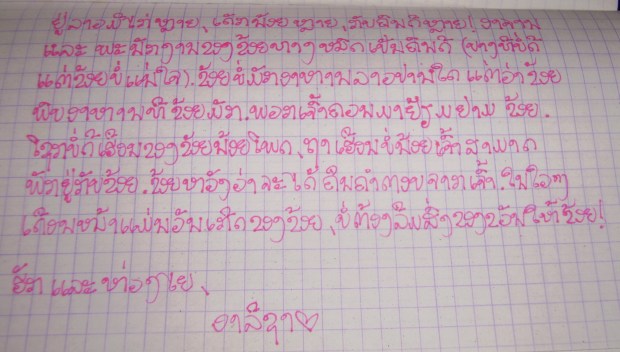 ຢູ່ລາວມີໄກ່ຫຼາຍ, ເດັກນ້ອຍຫຼາຍ, ກັບຄົນດີຫຼາຍ! ອາຈານ
ແລະ ພະນັກງານຂອງຂ້ອຍທາງໝົດເປັນຄົນດີ (ບາງທີບໍ່ດີ
ແຕ່ຂ້ອຍບໍ່ແນ່ໃຈ). ຂ້ອຍບໍ່ມັກອາຫານລາວປານໃດ ແຕ່ວ່າຂ້ອຍ
ພົບອາຫານທີ່ຂ້ອຍມັກ. ພວກເຈົ້າຄວນມາຢ້ຽມຢາມ ຂ້ອຍ.
ໂຊກບໍ່ດີເຮືອນຂອງຂ້ອຍນ້ອຍໂພດ, ຖ້າເຮືອນບໍ່ນ້ອຍເຈົ້າສາມາດ
ພັກຢູ່ກັບຂ້ອຍ. ຂ້ອຍຫວັງວ່າຈະໄດ້ຍິນຄຳຕອບຈາກເຈົ້າ. ໃນໄວໆ
ເດືອນໜ້າແມ່ນວັນເກີດຂອງຂ້ອຍ, ບໍ່ຕ້ອງລືມສົ່ງຂອງຂວັນໃຫ້ຂ້ອຍ!
ຮັກ ແລະ ຫ່ວງໃຍ,
ອາລີຊາ♡